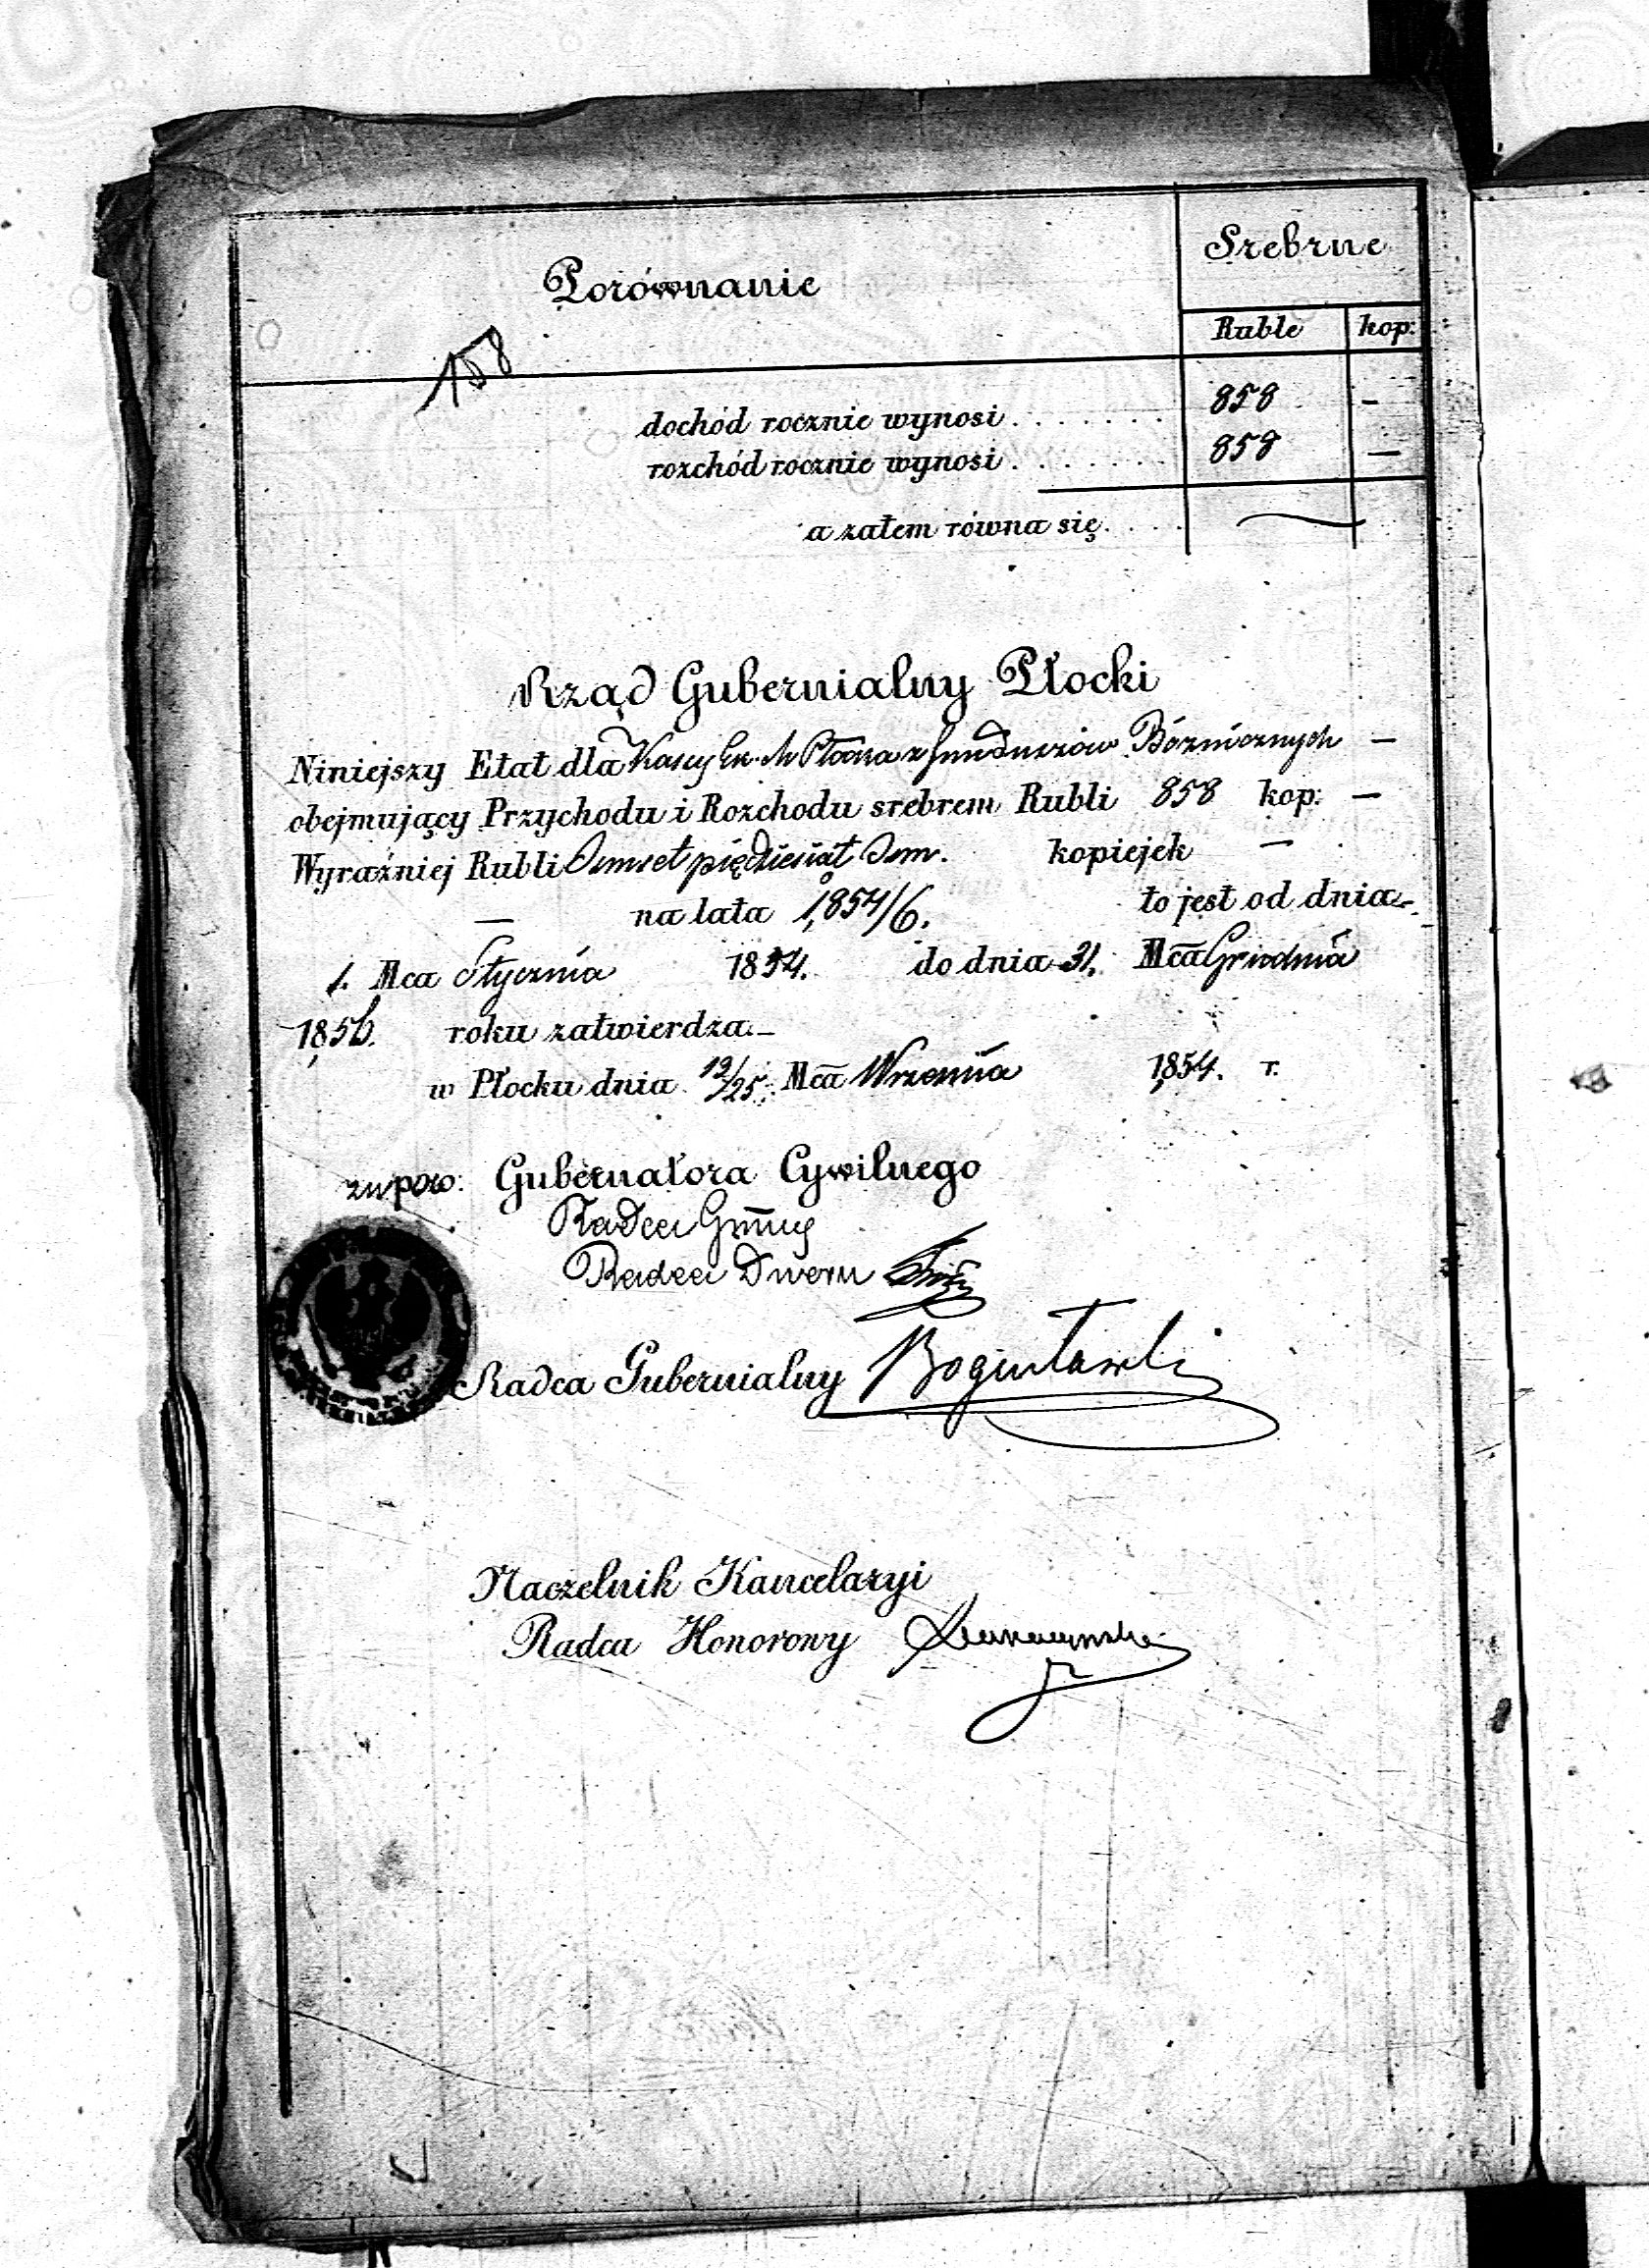 Porównanie
Srebrne
Ruble kop:
158
dochód rocznie wynosi . . . . . . . 858 -
rozchód rocznie wynosi . . . . . . . 858 —
a zatem równa się . . . .
Rząd Gubernialny Płocki
Niniejszy Etat dla Kassy Ek. M Płocka z funduszów Bóżnicznych —
obejmujący Przychodu i Rozchodu srebrem Rubli 858 kop: —
Wyraźniej Rubli Osmset pięćdziesiąt Osm. kopiejek —
— na lata 1854/6. to jest od dnia
1. Mca Stycznia 1854. do dnia 31. Mca Grudnia
1856. roku zatwierdza.-
w Płocku dnia 13/25. Mca Września 1854. r.
w Gubernatora Cywilnego
Radca
Radca Dworu
Radca Gubernialny Bogusławski
Naczelnik Kancelaryi
Radca Honorowy